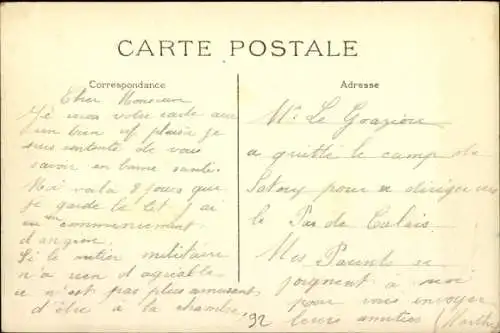 CARTE POSTALE
Correspondance
Cher Monsieur
Je reçois votre carte avec
un bien vif plaisir je
suis contente de vous
savoir en bonne santé.
Moi voilà 8 jours que
je garde le lit j'ai
un commencement
d'angine.
Si le métier militaire
n'a rien d'agréable
ce n'est pas plus amusant
d'être à la chambre.
92
Adresse
Mr Le Grazière
a quitté le camp de
Satory pour se diriger vers
le Pas de Calais.
Mes Parents se
joignent à moi
pour vous envoyer
leurs amitiés